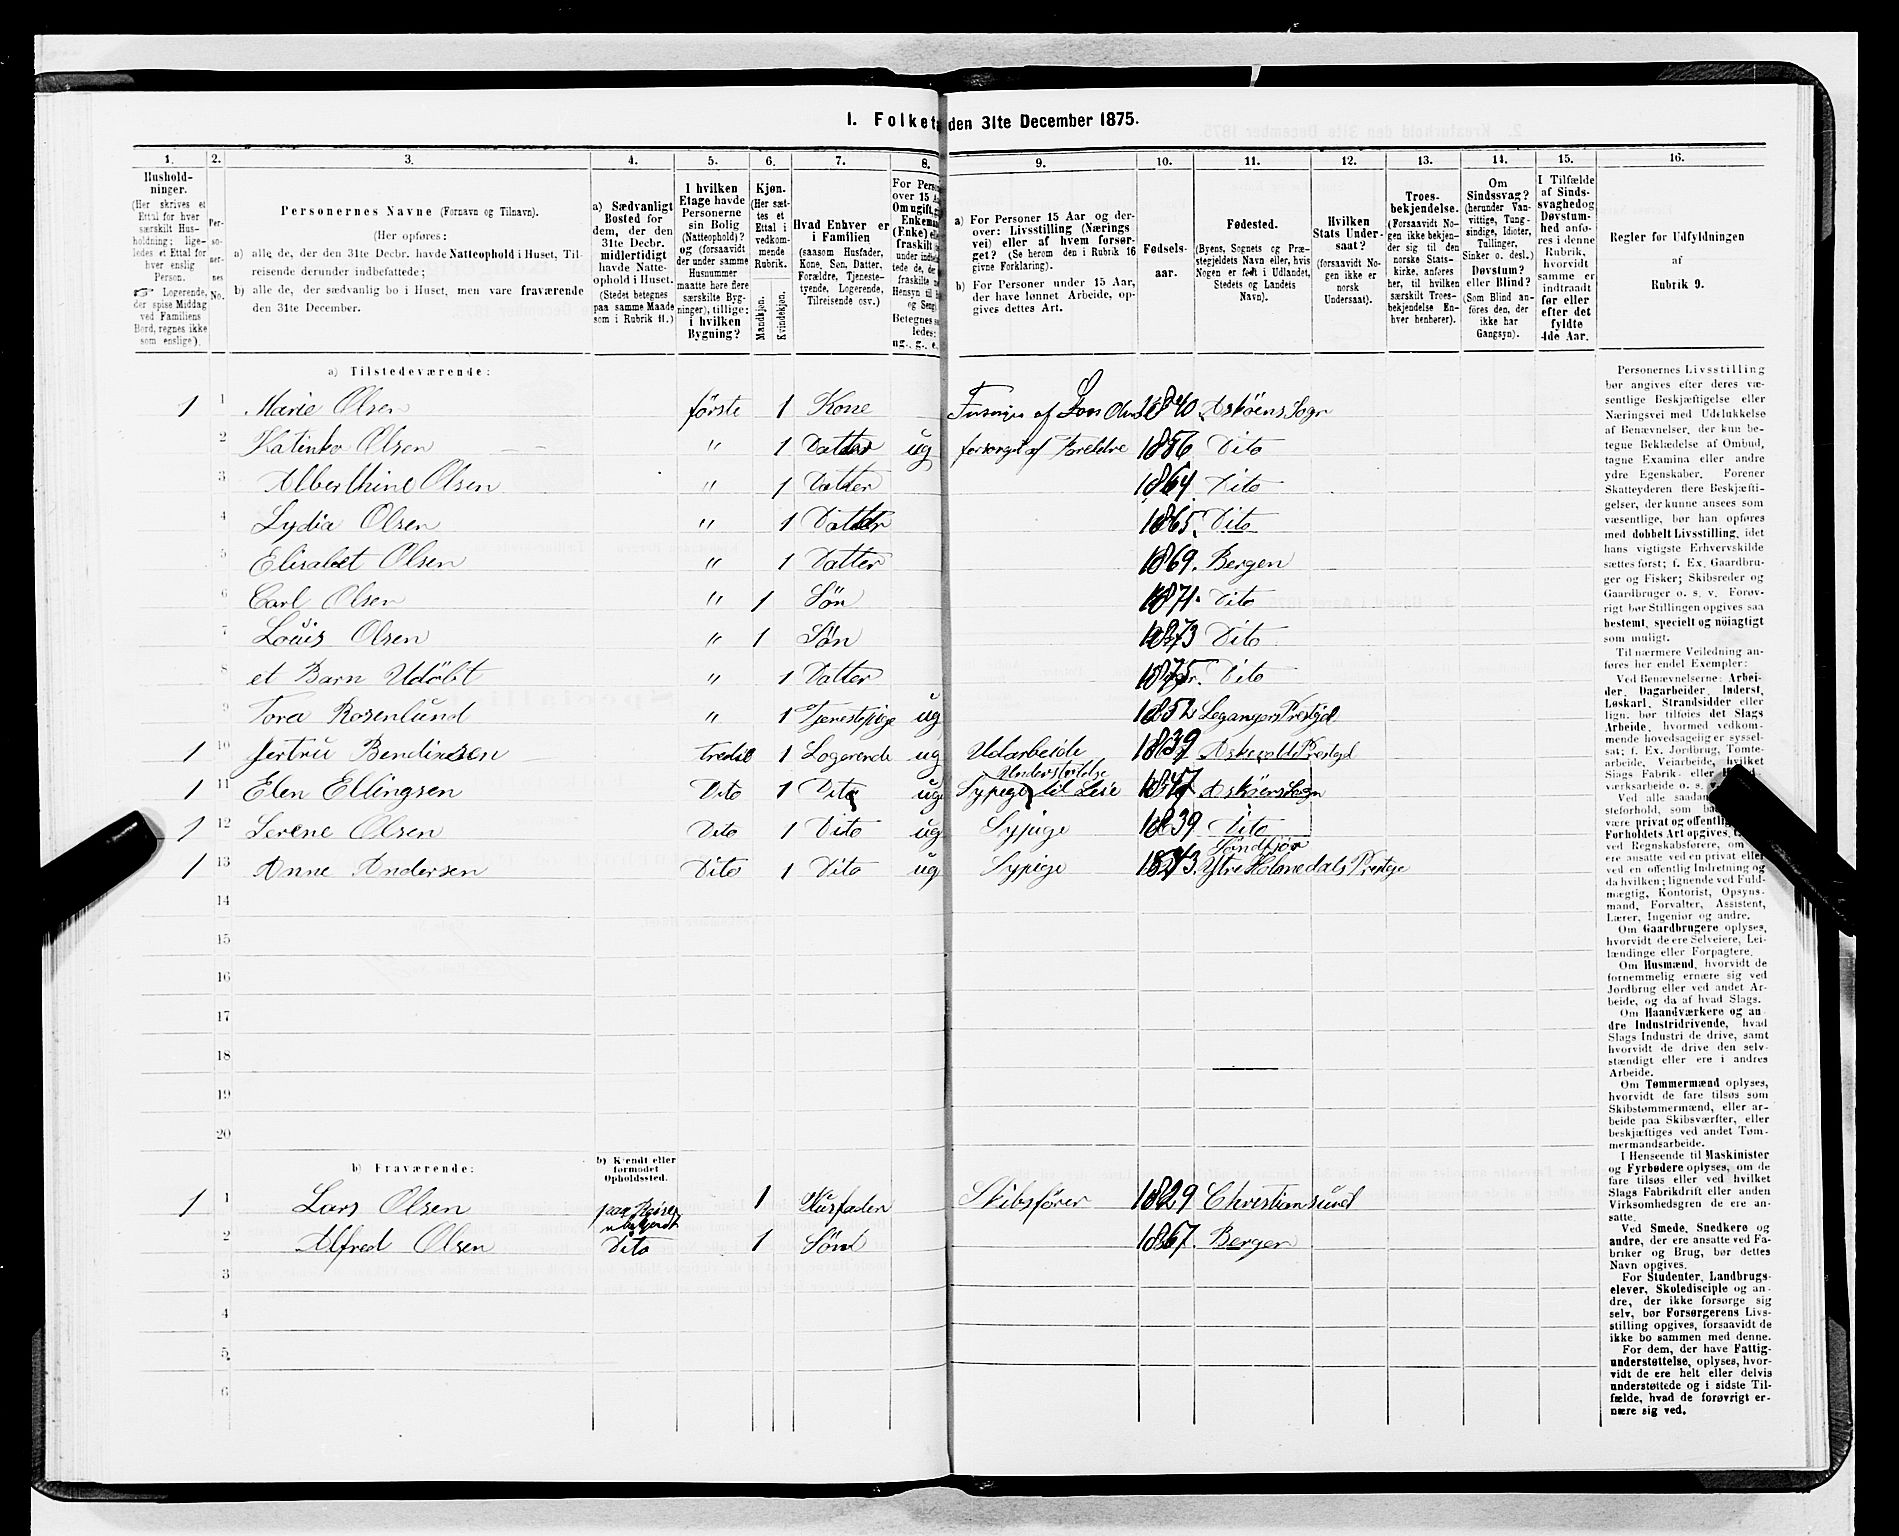 1. Folket den 31te December 1875.
1. 2. 3. 4. 5. 6. 7. 8. 9. 10. 11. 12. 13. 14. 15. 16.
Hushold-
ninger.
(Her skrives et
Ettal for hver
særskilt Hus-
holdning; lige-
ledes et Ettal for
hver enslig
Person.
☞ Logerende,
der spise Middag
ved Familiens
Bord, regnes ikke
som enslige).
Per-
so-
ner-
nes
No.
Personernes Navne (Fornavn og Tilnavn).
(Her opføres:
a) alle de, der den 31te Decbr. havde Natteophold i Huset, Til-
reisende derunder indbefattede;
b) alle de, der sædvanlig bo i Huset, men vare fraværende
den 31te December.
a) Sædvanligt
Bosted for
dem, der den
31te Decbr.
midlertidigt
havde Natte-
ophold i Huset.
(Stedet betegnes
paa samme Maade
som i Rubrik 11.)
I hvilken
Etage havde
Personerne
sin Bolig
(Natteophold)?
og (forsaavidt
der under samme
Husnummer
maatte høre flere
særskilte Byg-
ninger), tillige:
i hvilken
Bygning?
Kjøn.
(Her sæt-
tes et
Ettal i
vedkom-
mende
Rubrik.
Mandkjøn.
Kvindekjøn.
Hvad Enhver er
i Familien
(saasom Husfader,
Kone, Søn, Datter,
Forældre, Tjeneste-
tyende, Logerende,
Tilreisende osv.)
For Perso
over 15 A
Om ugift, g
Enkem
(Enke) el
fraskilt
under indb
tede de, de
fraskilte
Hensyn til
og Seng
Betegnes s
ledes:
ug., g., e.
a) For Personer 15 Aar og der-
over: Livsstilling (Nærings
vei) eller af hvem forsør-
get? (Se herom den i Rubrik 16
givne Forklaring).
b) For Personer under 15 Aar,
der have lønnet Arbeide, op-
gives dettes Art.
Fødsels-
aar.
Fødested.
(Byens, Sognets og Præ-
stegjeldets Navn eller, hvis
Nogen er født i Udlandet,
Stedets og Landets
Navn).
Hvilken
Stats Under-
saat?
(forsaavidt No-
gen ikke er
norsk
Undersaat).
Troes-
bekjendelse.
(Forsaavidt No-
gen ikke bekjen-
der sig til den
norske Stats-
kirke, anføres
her, til hvilken
særskilt Troes-
bekjendelse En-
hver henhører).
Om
Sindssvag?
(herunder Van-
vittige, Tung-
sindige, Idioter,
Tullinger,
Sinker o. desl.)
Døvstum?
eller Blind?
(Som Blind an-
føres den, der
ikke har
Gangsyn).
I Tilfælde
af Sinds-
svaghed og
Døvstum-
hed anfø-
res i denne
Rubrik,
hvorvidt
samme er
indtraadt
før eller
efter det
fyldte
4de Aar.
Regler for Udfyldningen
af
Rubrik 9.
a) Tilstedeværende:
1 1 Marie Olsen første 1 Kone af 1840 Askøens Sogn
2 Katinka Olsen " 1 Datter ug forsørget af Forældre 1856 Dito
3 Alberthine Olsen " 1 Datter 1864. Dito
4 Lydia Olsen " 1 Datter 1865. Dito
5 Elisabet Olsen " 1 Datter 1869. Bergen
6 Carl Olsen " 1 Søn 1871. Dito
7 Louis Olsen " 1 Søn 1873 Dito
8 et Barn Udøbt " 1 Datter 1875. Dito
9 Tora Rosenlund " 1 Tjenestepige ug 1852 Leganger Prestgjd
1 10 Jertru Bendixsen tredie 1 Logerende ug Udarbeide 1839 Askevolds Prestgd
Understøttelse
1 11 Elen Ellingsen Dito 1 Dito ug Sypige til Leie 1847 Askøens Sogn
1 12 Serene Olsen Dito 1 Dito ug Sypige 1839 Dito
1 13 Anne Andersen Dito 1 Dito ug Sypige 1843. Ytre Holmedals Prestge
14
15
16
17
18
19
20
b) Fraværende:
b) Kjendt eller
formodet
Opholdssted.
1 1 Lars Olsen paa Reise 1 Husfader Skibsfører 1829 Christiansund
ubekjendt
2 Alfred Olsen Dito 1 Søn 1867. Bergen
3
4
5
6
Personernes Livsstilling
bør angives efter deres væ-
sentlige Beskjæftigelse eller
Næringsvei med Udelukkelse
af Benævnelser, der kun be-
tegne Beklædelse af Ombud,
tagne Examina eller andre
ydre Egenskaber. Forener
Skatteyderen flere Beskjæfti-
gelser, der kunne ansees som
væsentlige, bør han opføres
med dobbelt Livsstilling, idet
hans vigtigste Erhvervskilde
sættes først; f. Ex. Gaardbru-
ger og Fisker; Skibsreder og
Gaardbruger o. s. v. Forøv-
rigt bør Stillingen opgives saa
bestemt, specielt og nöiagtigt
som muligt.
Til nærmere Veiledning an-
føres her endel Exempler:
Ved Benævnelserne: Arbei-
der, Dagarbeider, Inderst,
Løskarl, Strandsidder eller
lign. bør tilføies det Slags
Arbeide, hvormed vedkom-
mende hovedsagelig er syssel-
sat; f. Ex. Jordbrug, Tomte-
arbeide, Veiarbeide, hvilket
Slags Fabrik- eller
værksarbeide o. s.
Ved alle saadan
steforhold, som ba
være privat og offentlig
Forholdets Art opgives,
ved Regnskabsførere, om
ere ansatte ved en privat eller
ved en offentlig Indretning og
da hvilken; lignende ved Fuld-
mægtig, Kontorist, Opsyns-
mand, Forvalter, Assistent,
Lærer, Ingeniør og andre.
Om Gaardbrugere oplyses,
hvorvidt de ere Selveiere, Lei-
lændinge eller Forpagtere.
Om Husmænd, hvorvidt de
fornemmelig ernære sig ved
Jordbrug eller ved andet Ar-
beide, og da af hvad Slags.
Om Haandværkere og an-
dre Industridrivende, hvad
Slags Industri de drive, samt
hvorvidt de drive den selv-
stændigt eller ere i andres
Arbeide.
Om Tømmermænd oplyses,
hvorvidt de fare tilsøs som
Skibstømmermænd, eller ar-
beide paa Skibsværfter, eller
beskjæftiges ved andet Tøm-
mermandsarbeide.
I Henseende til Maskinister
og Fyrbødere oplyses, om de
fare tilsøs eller ved hvilket
Slags Fabrikdrift eller anden
Virksomhedsgren de ere an-
satte.
Ved Smede, Snedkere og
andre, der ere ansatte ved Fa-
briker og Brug, bør dettes
Navn opgives.
For Studenter, Landbrugs-
elever, Skoledisciple og an-
dre, der ikke forsørge sig
selv, bør Forsørgerens Livs-
stilling opgives, forsaavidt de
ikke bo sammen med denne.
For dem, der have Fattig-
understøttelse, oplyses, hvor-
vidt de ere helt eller delvis
understøttede og i sidste Til-
fælde, hvad de forøvrigt er-
nære sig ved.